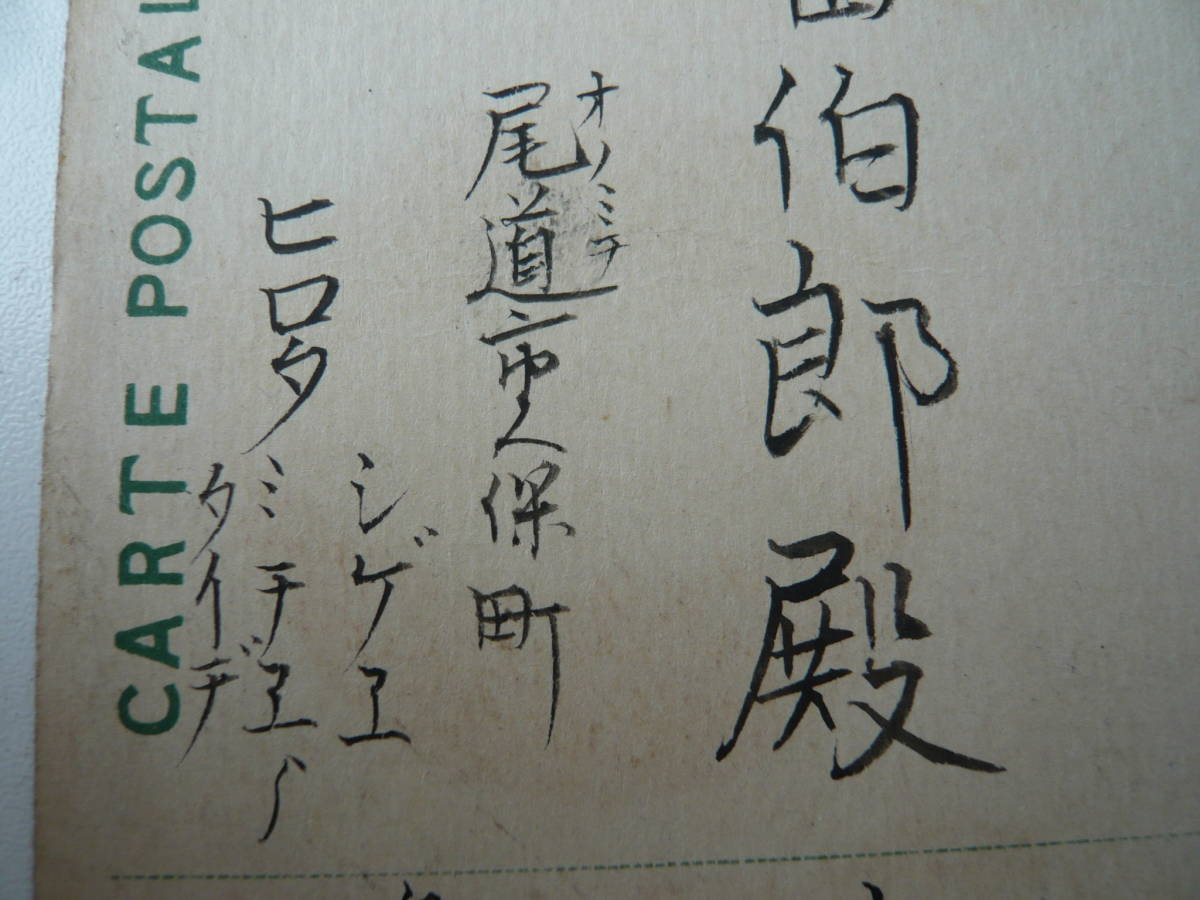 伯郎殿
オノミチ
尾道市久保町
シゲヱ
ヒロタ ミチヱ
タイヂ
CARTE POSTAL